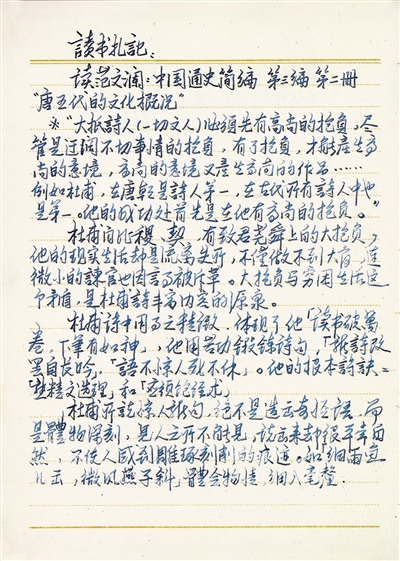 讀书扎記：
读范文瀾：中国通史简编 第三编 第二冊
"唐五代的文化概况"
※"大抵詩人(一切文人)必須先有高尚的抱負,尽
管是迂濶不切事情的抱負，有了抱負，才能産生高
尚的意境，高尚的意境又産生高尚的作品……
例如杜甫，在唐朝是詩人第一，在古代所有詩人中也
是第一。他的成功处首先是在他有高尚的抱負。"
杜甫自比稷、契，有致君堯舜上的大抱負，
他的现实生活却是流离失所，不僅做不到大官，連
微小的諫官也因言事被斥革。大抱負与穷困生活这
个矛盾，是杜甫詩丰富内容的源泉。
杜甫詩中用力之精微，体现了他「读书破萬
卷，下筆有如神」，他用苦功锻鍊詩句，「新詩改
罢自長吟」，「語不惊人死不休」。他的根本詩訣=
「熟精文选理」和
杜甫所谓惊人句，绝不是造奇怪語，而
是體物深刻，見人之所不能見，说出来却很平常自
然，不使人感到雕琢刻削的痕迹。如「細雨鱼
儿出，微风燕子斜」體会物情，細入毫釐.